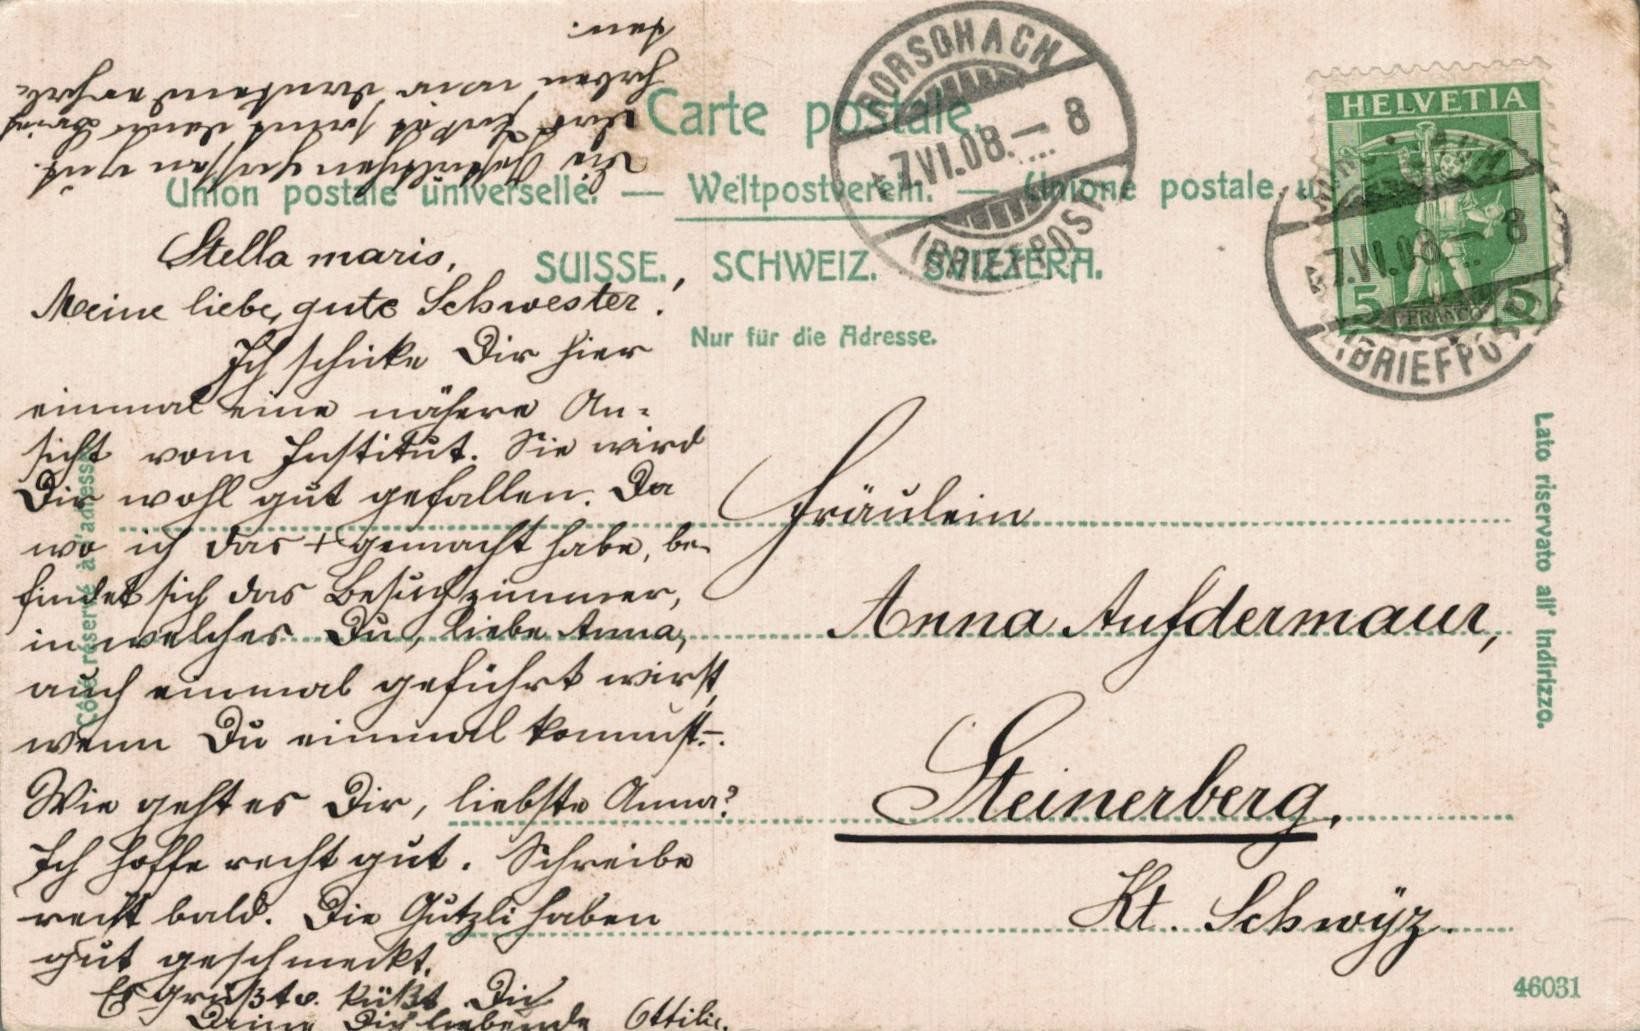 Carte postale.
Union postale universelle. — Weltpostverein. — Unione postale u
SUISSE. SCHWEIZ. SVIZZERA.
Nur für die Adresse.
RORSCHACH
7.VI.08.— 8
(BRIEFPOST)
HELVETIA
5 FRANCO 5
7.VI.08.— 8
(BRIEFPOST)
Stella maris,
Meine liebe, gute Schwester!
Ich schicke Dir hier
einmal eine nähere An-
sicht vom Institut. Sie wird
Dir wohl gut gefallen. Da
wo ich das + gemacht habe, be-
findet sich das Besuchzimmer,
in welches Du, liebe Anna,
auch einmal geführt wirst,
wenn Du einmal kommst.-.
Wie geht es Dir, liebste Anna?
Ich hoffe recht gut. Schreibe
recht bald. Die Gutzli haben
gut geschmeckt.
Es grüßt u. küßt Dich
Deine Dich liebende Ottilie.
Die
gut.
haben wir
den.
Fräulein
Anna Aufdermaur,
Steinerberg.
Kt. Schwÿz.
Côté réservé à l'adresse
Lato riservato all' indirizzo.
46031